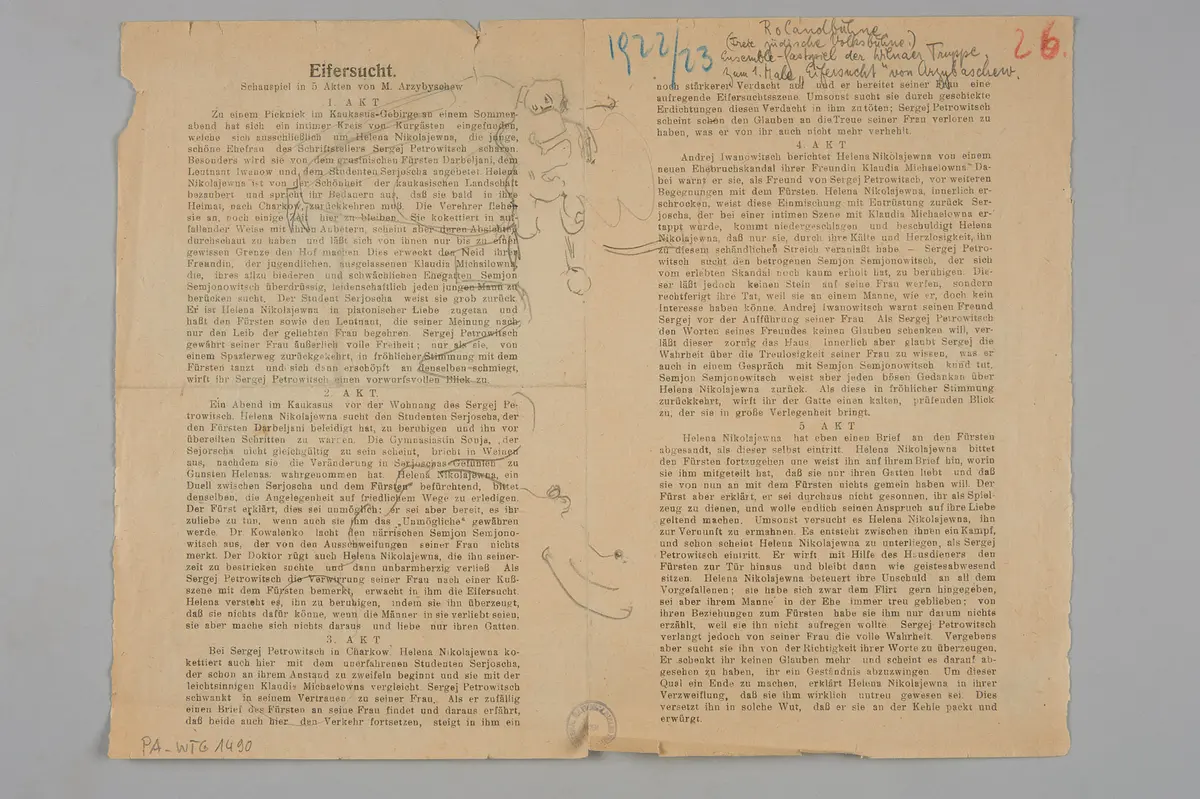 Eifersucht.
Schauspiel in 5 Akten von M. Arzybyschew
1. AKT
Zu einem Picknick im Kaukasus-Gebirge an einem Sommer-
abend hat sich ein intimer Kreis von Kurgästen eingefunden,
welche sich ausschließlich um Helena Nikolajewna, die junge,
schöne Ehefrau des Schriftstellers Sergej Petrowitsch scharen.
Besonders wird sie von dem grusinischen Fürsten Darbeljani, dem
Leutnant Iwanow und dem Studenten Serjoscha angebetet. Helena
Nikolajewna ist von der Schönheit der kaukasischen Landschaft
bezaubert und spricht ihr Bedauern aus, daß sie bald in ihre
Heimat, nach Charkow, zurückkehren muß. Die Verehrer flehen
sie an, noch einige Zeit hier zu bleiben. Sie kokettiert in auf-
fallender Weise mit ihren Anbetern, scheint aber deren Absichten
durchschaut zu haben und läßt sich von ihnen nur bis zu einer
gewissen Grenze den Hof machen. Dies erweckt den Neid ihrer
Freundin, der jugendlichen, ausgelassenen Klaudia Michailowna,
die, ihres allzu biederen und schwächlichen Ehegatten Semjon
Semjonowitsch überdrüssig, leidenschaftlich jeden jungen Mann zu
berücken sucht. Der Student Serjoscha weist sie grob zurück.
Er ist Helena Nikolajewna in platonischer Liebe zugetan und
haßt den Fürsten sowie den Leutnant, die seiner Meinung nach
nur den Leib der geliebten Frau begehren. Sergej Petrowitsch
gewährt seiner Frau äußerlich volle Freiheit; nur als sie, von
einem Spazierweg zurückgekehrt, in fröhlicher Stimmung mit dem
Fürsten tanzt und sich dann erschöpft an denselben schmiegt,
wirft ihr Sergej Petrowitsch einen vorwurfsvollen Blick zu.
2. AKT.
Ein Abend im Kaukasus vor der Wohnung des Sergej Pe-
trowitsch. Helena Nikolajewna sucht den Studenten Serjoscha, der
den Fürsten Darbeljani beleidigt hat, zu beruhigen und ihn vor
übereilten Schritten zu warnen. Die Gymnasiastin Sonja, der
Sejorscha nicht gleichgültig zu sein scheint, bricht in Weinen
aus, nachdem sie die Veränderung in Serjoschas Gefühlen zu
Gunsten Helenas, wahrgenommen hat. Helena Nikolajewna, ein
Duell zwischen Serjoscha und dem Fürsten befürchtend, bittet
denselben, die Angelegenheit auf friedlichem Wege zu erledigen.
Der Fürst erklärt, dies sei unmöglich; er sei aber bereit, es ihr
zuliebe zu tun, wenn auch sie ihm das „Unmögliche" gewähren
werde. Dr Kowalenko lacht den närrischen Semjon Semjono-
witsch aus, der von den Ausschweifungen seiner Frau nichts
merkt. Der Doktor rügt auch Helena Nikolajewna, die ihn seiner-
zeit zu bestricken suchte und dann unbarmherzig verließ Als
Sergej Petrowitsch die Verwirrung seiner Frau nach einer Kuß-
szene mit dem Fürsten bemerkt, erwacht in ihm die Eifersucht.
Helena versteht es, ihn zu beruhigen, indem sie ihn überzeugt,
daß sie nichts dafür könne, wenn die Männer in sie verliebt seien,
sie aber mache sich nichts daraus und liebe nur ihren Gatten.
3. AKT
Bei Sergej Petrowitsch in Charkow. Helena Nikolajewna ko-
kettiert auch hier mit dem unerfahrenen Studenten Serjoscha,
der schon an ihrem Anstand zu zweifeln beginnt und sie mit der
leichtsinnigen Klaudia Michaelowna vergleicht. Sergej Petrowitsch
schwankt in seinem Vertrauen zu seiner Frau. Als er zufällig
einen Brief des Fürsten an seine Frau findet und daraus erfährt,
daß beide auch hier den Verkehr fortsetzen, steigt in ihm ein
PA-WTG 1490
1922/23
Rolandbühne
(Freie jüdische Volksbühne.)
Ensemble-Gastspiel der Wilnaer Truppe,
Zum 1. Male „Eifersucht" von Arzybaschew.
26.
noch stärkerer Verdacht auf und er bereitet seiner Frau eine
aufregende Eifersuchtsszene. Umsonst sucht sie durch geschickte
Erdichtungen diesen Verdacht in ihm zu töten; Sergej Petrowitsch
scheint schon den Glauben an die Treue seiner Frau verloren zu
haben, was er von ihr auch nicht mehr verhehlt.
4. AKT
Andrej Iwanowitsch berichtet Helena Nikolajewna von einem
neuen Ehebruchskandal ihrer Freundin Klaudia Michaelowna Da-
bei warnt er sie, als Freund von Sergej Petrowitsch, vor weiteren
Begegnungen mit dem Fürsten. Helena Nikolajewna, innerlich er-
schrocken, weist diese Einmischung mit Entrüstung zurück Ser-
joscha, der bei einer intimen Szene mit Klaudia Michaelowna er-
tappt wurde, kommt niedergeschlagen und beschuldigt Helena
Nikolajewna, daß nur sie, durch ihre Kälte und Herzlosigkeit, ihn
zu diesem schändlichen Streich veranlaßt habe — Sergej Petro-
witsch sucht den betrogenen Semjon Semjonowitsch, der sich
vom erlebten Skandal noch kaum erholt hat, zu beruhigen. Die-
ser läßt jedoch keinen Stein auf seine Frau werfen, sondern
rechtferigt ihre Tat, weil sie an einem Manne, wie er, doch kein
Interesse haben könne. Andrej Iwanowitsch warnt seinen Freund
Sergej vor der Aufführung seiner Frau Als Sergej Petrowitsch
den Worten seines Freundes keinen Glauben schenken will, ver-
läßt dieser zornig das Haus Innerlich aber glaubt Sergej die
Wahrheit über die Treulosigkeit seiner Frau zu wissen, was er
auch in einem Gespräch mit Semjon Semjonowitsch kund tut.
Semjon Semjonowitsch weist aber jeden bösen Gedanken über
Helena Nikolajewna zurück. Als diese in fröhlicher Stimmung
zurückkehrt, wirft ihr der Gatte einen kalten, prüfenden Blick
zu, der sie in große Verlegenheit bringt.
5 AKT
Helena Nikolajewna hat eben einen Brief an den Fürsten
abgesandt, als dieser selbst eintritt. Helena Nikolajewna bittet
den Fürsten fortzugehen une weist ihn auf ihrem Brief hin, worin
sie ihm mitgeteilt hat, daß sie nur ihren Gatten liebt und daß
sie von nun an mit dem Fürsten nichts gemein haben will. Der
Fürst aber erklärt, er sei durchaus nicht gesonnen, ihr als Spiel-
zeug zu dienen, und wolle endlich seinen Anspruch auf ihre Liebe
geltend machen. Umsonst versucht es Helena Nikolajewna, ihn
zur Vernunft zu ermahnen. Es entsteht zwischen ihnen ein Kampf,
und schon scheint Helena Nikolajewna zu unterliegen, als Sergej
Petrowitsch eintritt. Er wirft mit Hilfe des Hausdieners den
Fürsten zur Tür hinaus und bleibt dann wie geistesabwesend
sitzen. Helena Nikolajewna beteuert ihre Unschuld an all dem
Vorgefallenen; sie habe sich zwar dem Flirt gern hingegeben,
sei aber ihrem Manne in der Ehe immer treu geblieben; von
ihren Beziehungen zum Fürsten habe sie ihm nur darum nichts
erzählt, weil sie ihn nicht aufregen wollte Sergej Petrowitsch
verlangt jedoch von seiner Frau die volle Wahrheit. Vergebens
aber sucht sie ihn von der Richtigkeit ihrer Worte zu überzeugen.
Er schenkt ihr keinen Glauben mehr und scheint es darauf ab-
gesehen zu haben, ihr ein Geständnis abzuzwingen Um dieser
Qual ein Ende zu machen, erklärt Helena Nikolajewna in ihrer
Verzweiflung, daß sie ihm wirklich untreu gewesen sei. Dies
versetzt ihn in solche Wut, daß er sie an der Kehle packt und
erwürgt.